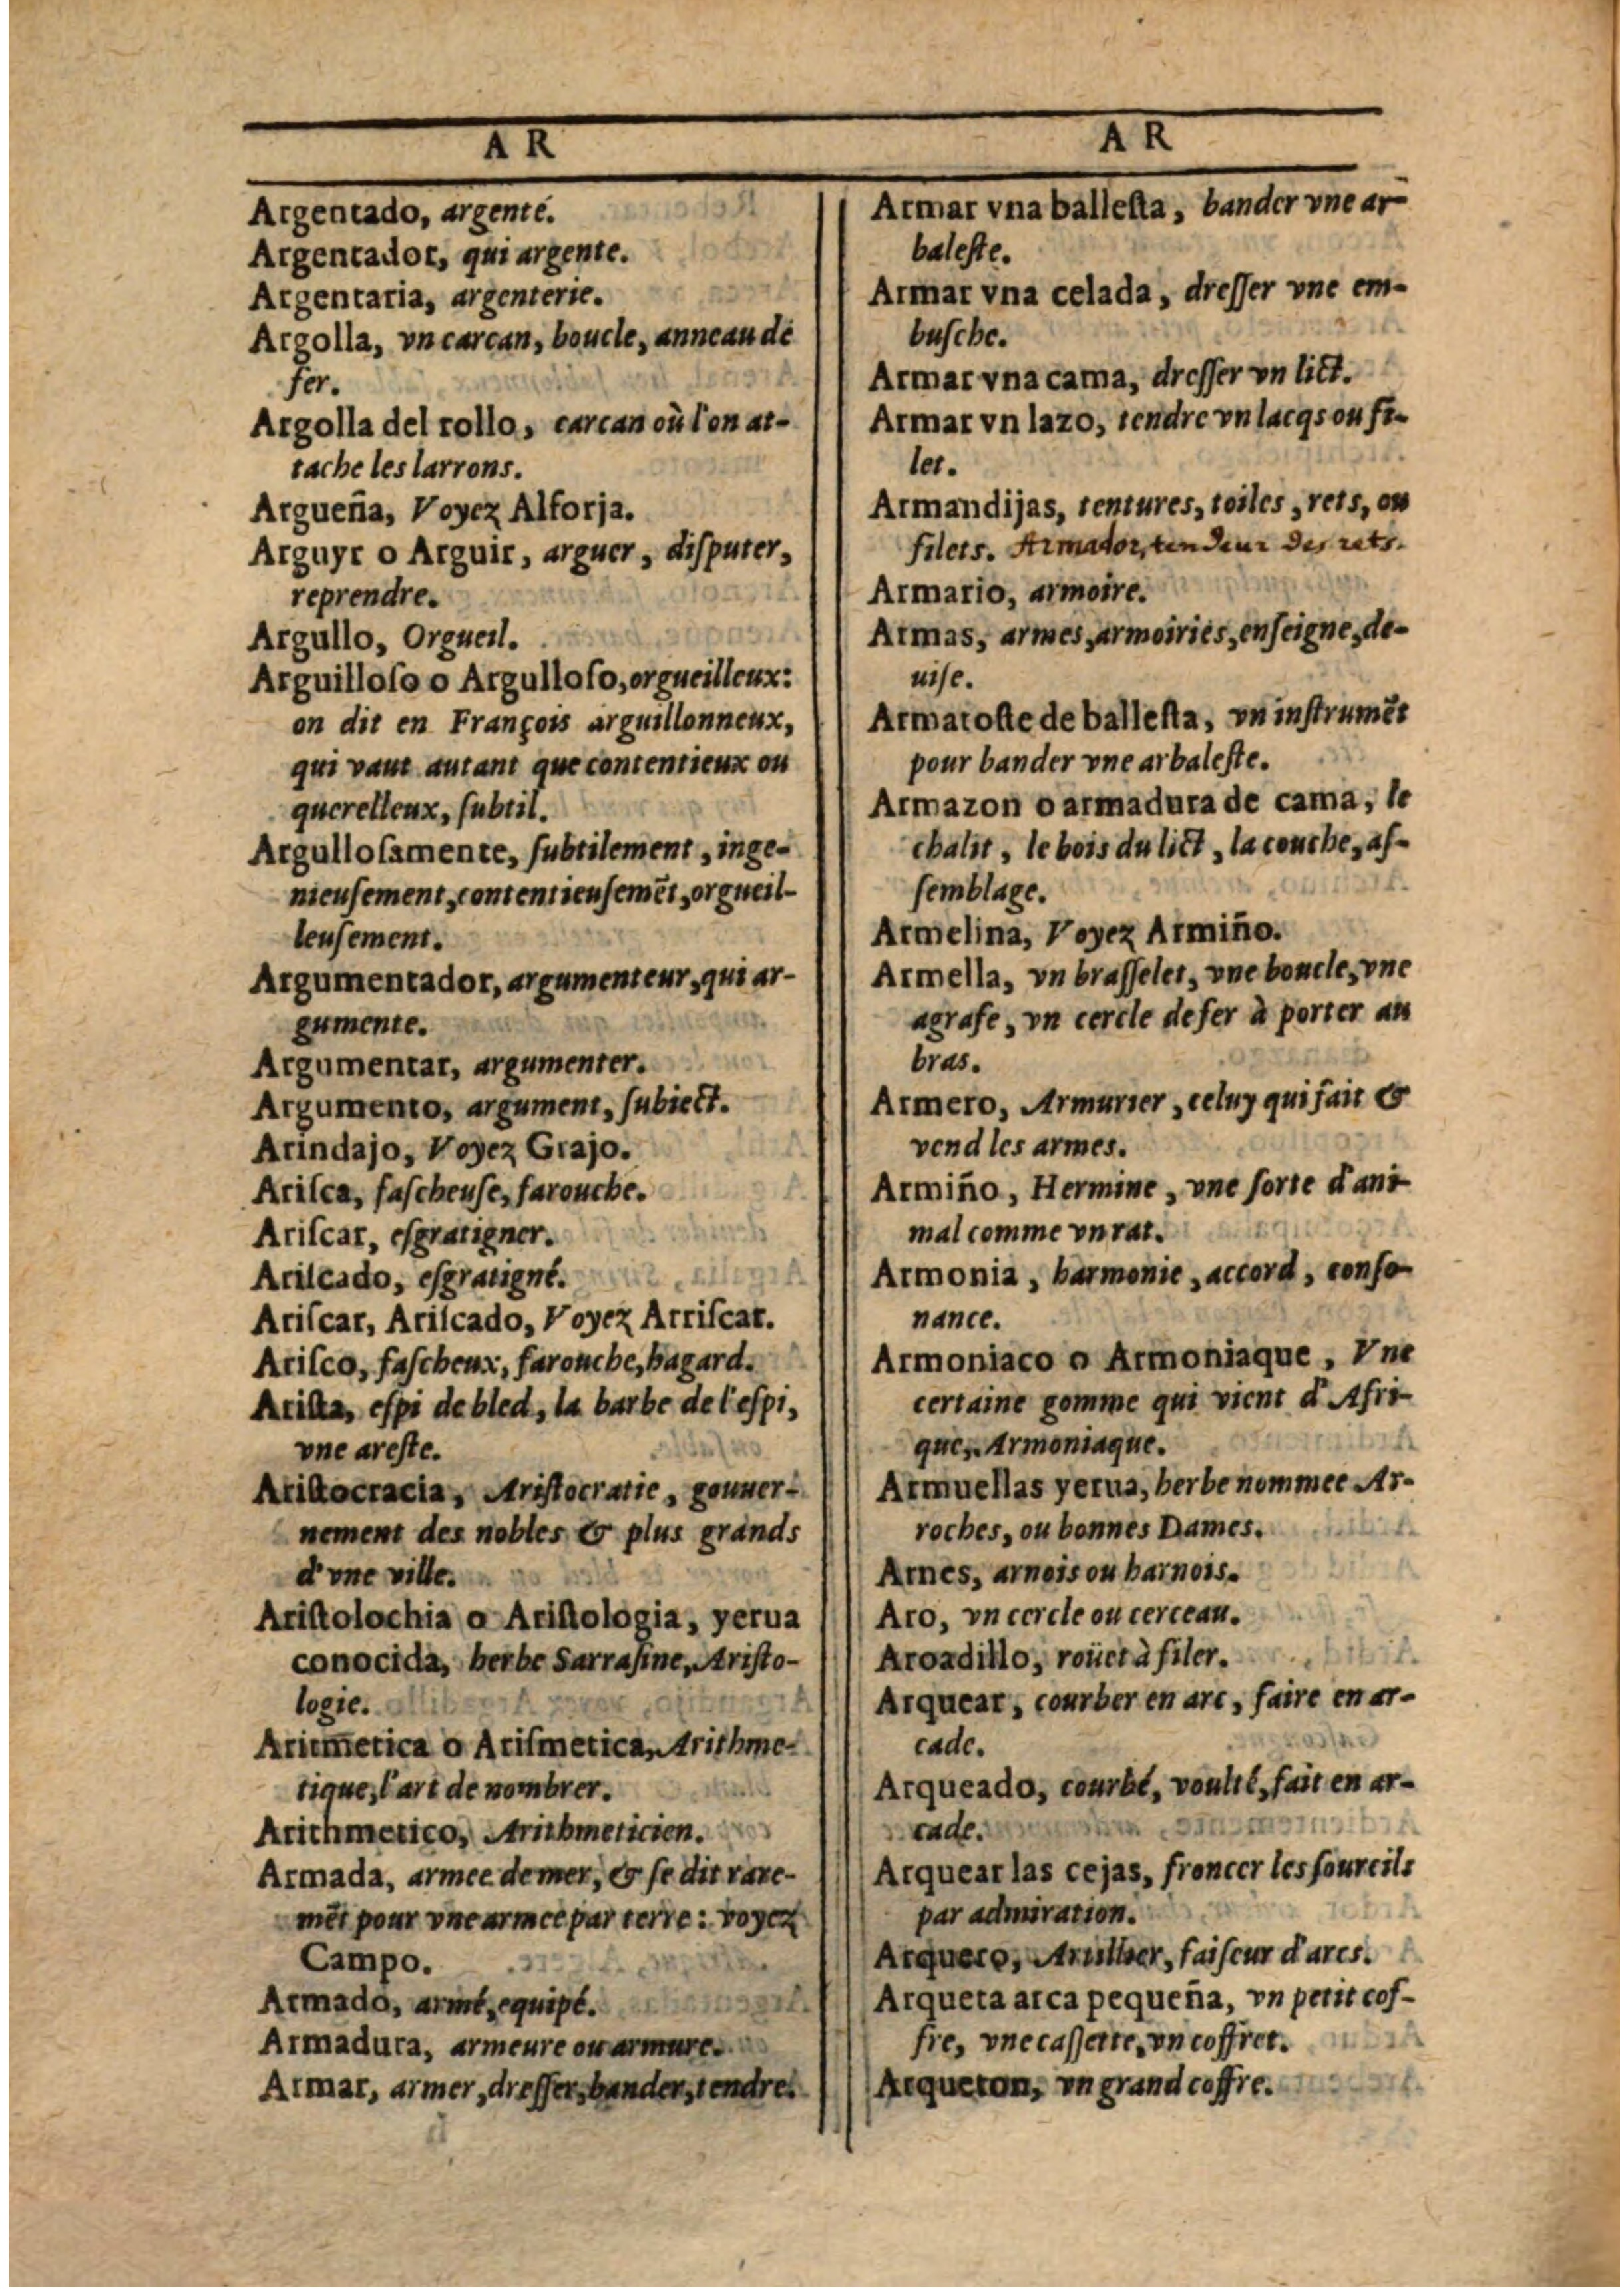 A R
Argentado, argenté.
Argentador, qui argente.
Argentaria, argenterie.
Argolla, vn carcan, boucle, anneau de
fer.
Argolla del rollo, carcan où l'on at-
tache les larrons.
Argueña, Voyez Alforja.
Arguyr o Arguir, arguer, diſputer,
reprendre.
Argullo, Orgueil.
Arguilloſo o Argulloſo, orgueilleux:
on dit en François arguillonneux,
qui vaut autant que contentieux ou
querelleux, ſubtil.
Argulloſamente, ſubtilement, inge-
nieuſement, contentieuſemẽt, orgueil-
leuſement.
Argumentador, argumenteur, qui ar-
gumente.
Argumentar, argumenter.
Argumento, argument, ſubiect.
Arindajo, Voyez Grajo.
Ariſca, faſcheuſe, farouche.
Ariſcar, eſgratigner.
Ariſcado, eſgratigné.
Ariſcar, Ariſcado, Voyez Arriſcar.
Ariſco, faſcheux, farouche, hagard.
Ariſta, eſpi de bled, la barbe de l'eſpi,
vne areſte.
Ariſtocracia, Ariſtocratie, gouuer-
nement des nobles & plus grands
d'vne ville.
Ariſtolochia o Ariſtologia, yerua
conocida, herbe Sarraſine, Ariſto-
logie.
Aritmetica o Ariſmetica, Arithme-
tique, l'art de nombrer.
Arithmetico, Arithmeticien.
Armada, armee de mer, & ſe dit rare-
mẽt pour vne armee par terre: voyez
Campo.
Armado, armé, equipé.
Armadura, armeure ou armure.
Armar, armer, dreſſer, bander, tendre.
A R
Armar vna balleſta, bander vne ar-
baleſte.
Armar vna celada, dreſſer vne em-
buſche.
Armar vna cama, dreſſer vn lict.
Armar vn lazo, tendre vn lacqs ou fi-
let.
Armandijas, tentures, toiles, rets, ou
filets. Armador, tendeur des rets.
Armario, armoire.
Armas, armes, armoiries, enſeigne, de-
uiſe.
Armatoſte de balleſta, vn inſtrumẽt
pour bander vne arbaleſte.
Armazon o armadura de cama, le
chalit, le bois du lict, la couche, aſ-
ſemblage.
Armelina, Voyez Armiño.
Armella, vn braſſelet, vne boucle, vne
agrafe, vn cercle de fer à porter au
bras.
Armero, Armurier, celuy qui fait &
vend les armes.
Armiño, Hermine, vne ſorte d'ani-
mal comme vn rat.
Armonia, harmonie, accord, conſo-
nance.
Armoniaco o Armoniaque, Vne
certaine gomme qui vient d'Afri-
que, Armoniaque.
Armuellas yerua, herbe nommee Ar-
roches, ou bonnes Dames.
Arnes, arnois ou harnois.
Aro, vn cercle ou cerceau.
Aroadillo, roüet à filer.
Arquear, courber en arc, faire en ar-
cade.
Arqueado, courbé, voulté, fait en ar-
cade.
Arquear las cejas, froncer les ſourcils
par admiration.
Arquero, Artillier, faiſeur d'arcs.
Arqueta arca pequeña, vn petit cof-
fre, vne caſſette, vn coffret.
Arqueton, vn grand coffre.